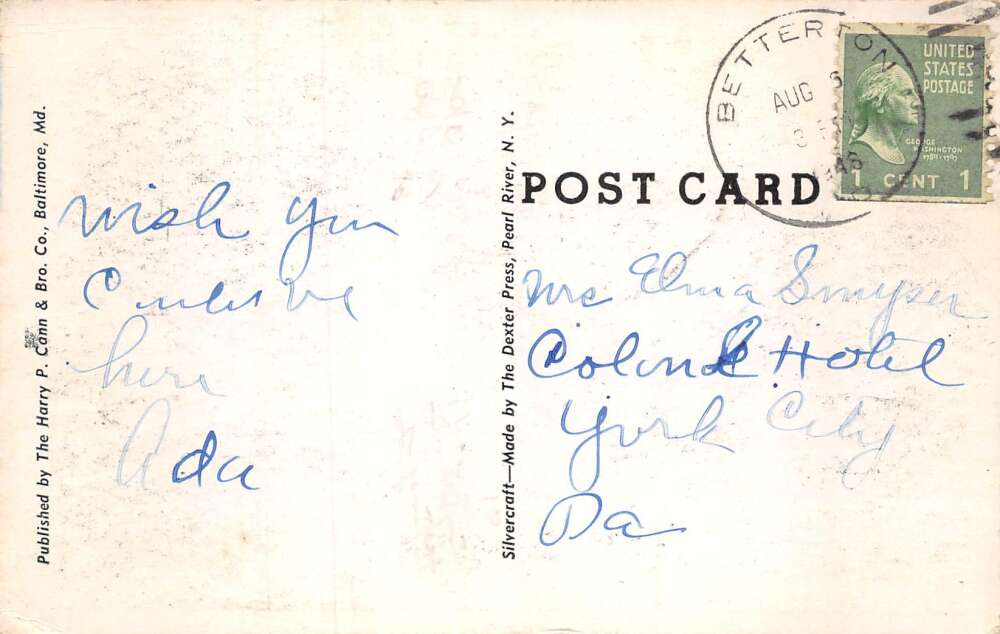 Published by The Harry P. Cann & Bro. Co., Baltimore, Md.
Wish you
Could be
here
Ada
Silvercraft—Made by The Dexter Press, Pearl River, N. Y.
POST CARD
BETTERTON
AUG 6
UNITED
STATES
POSTAGE
GEORGE
WASHINGTON
1789-1797
1 CENT 1
Mrs Elma Smyser
Hotel
York City
Pa